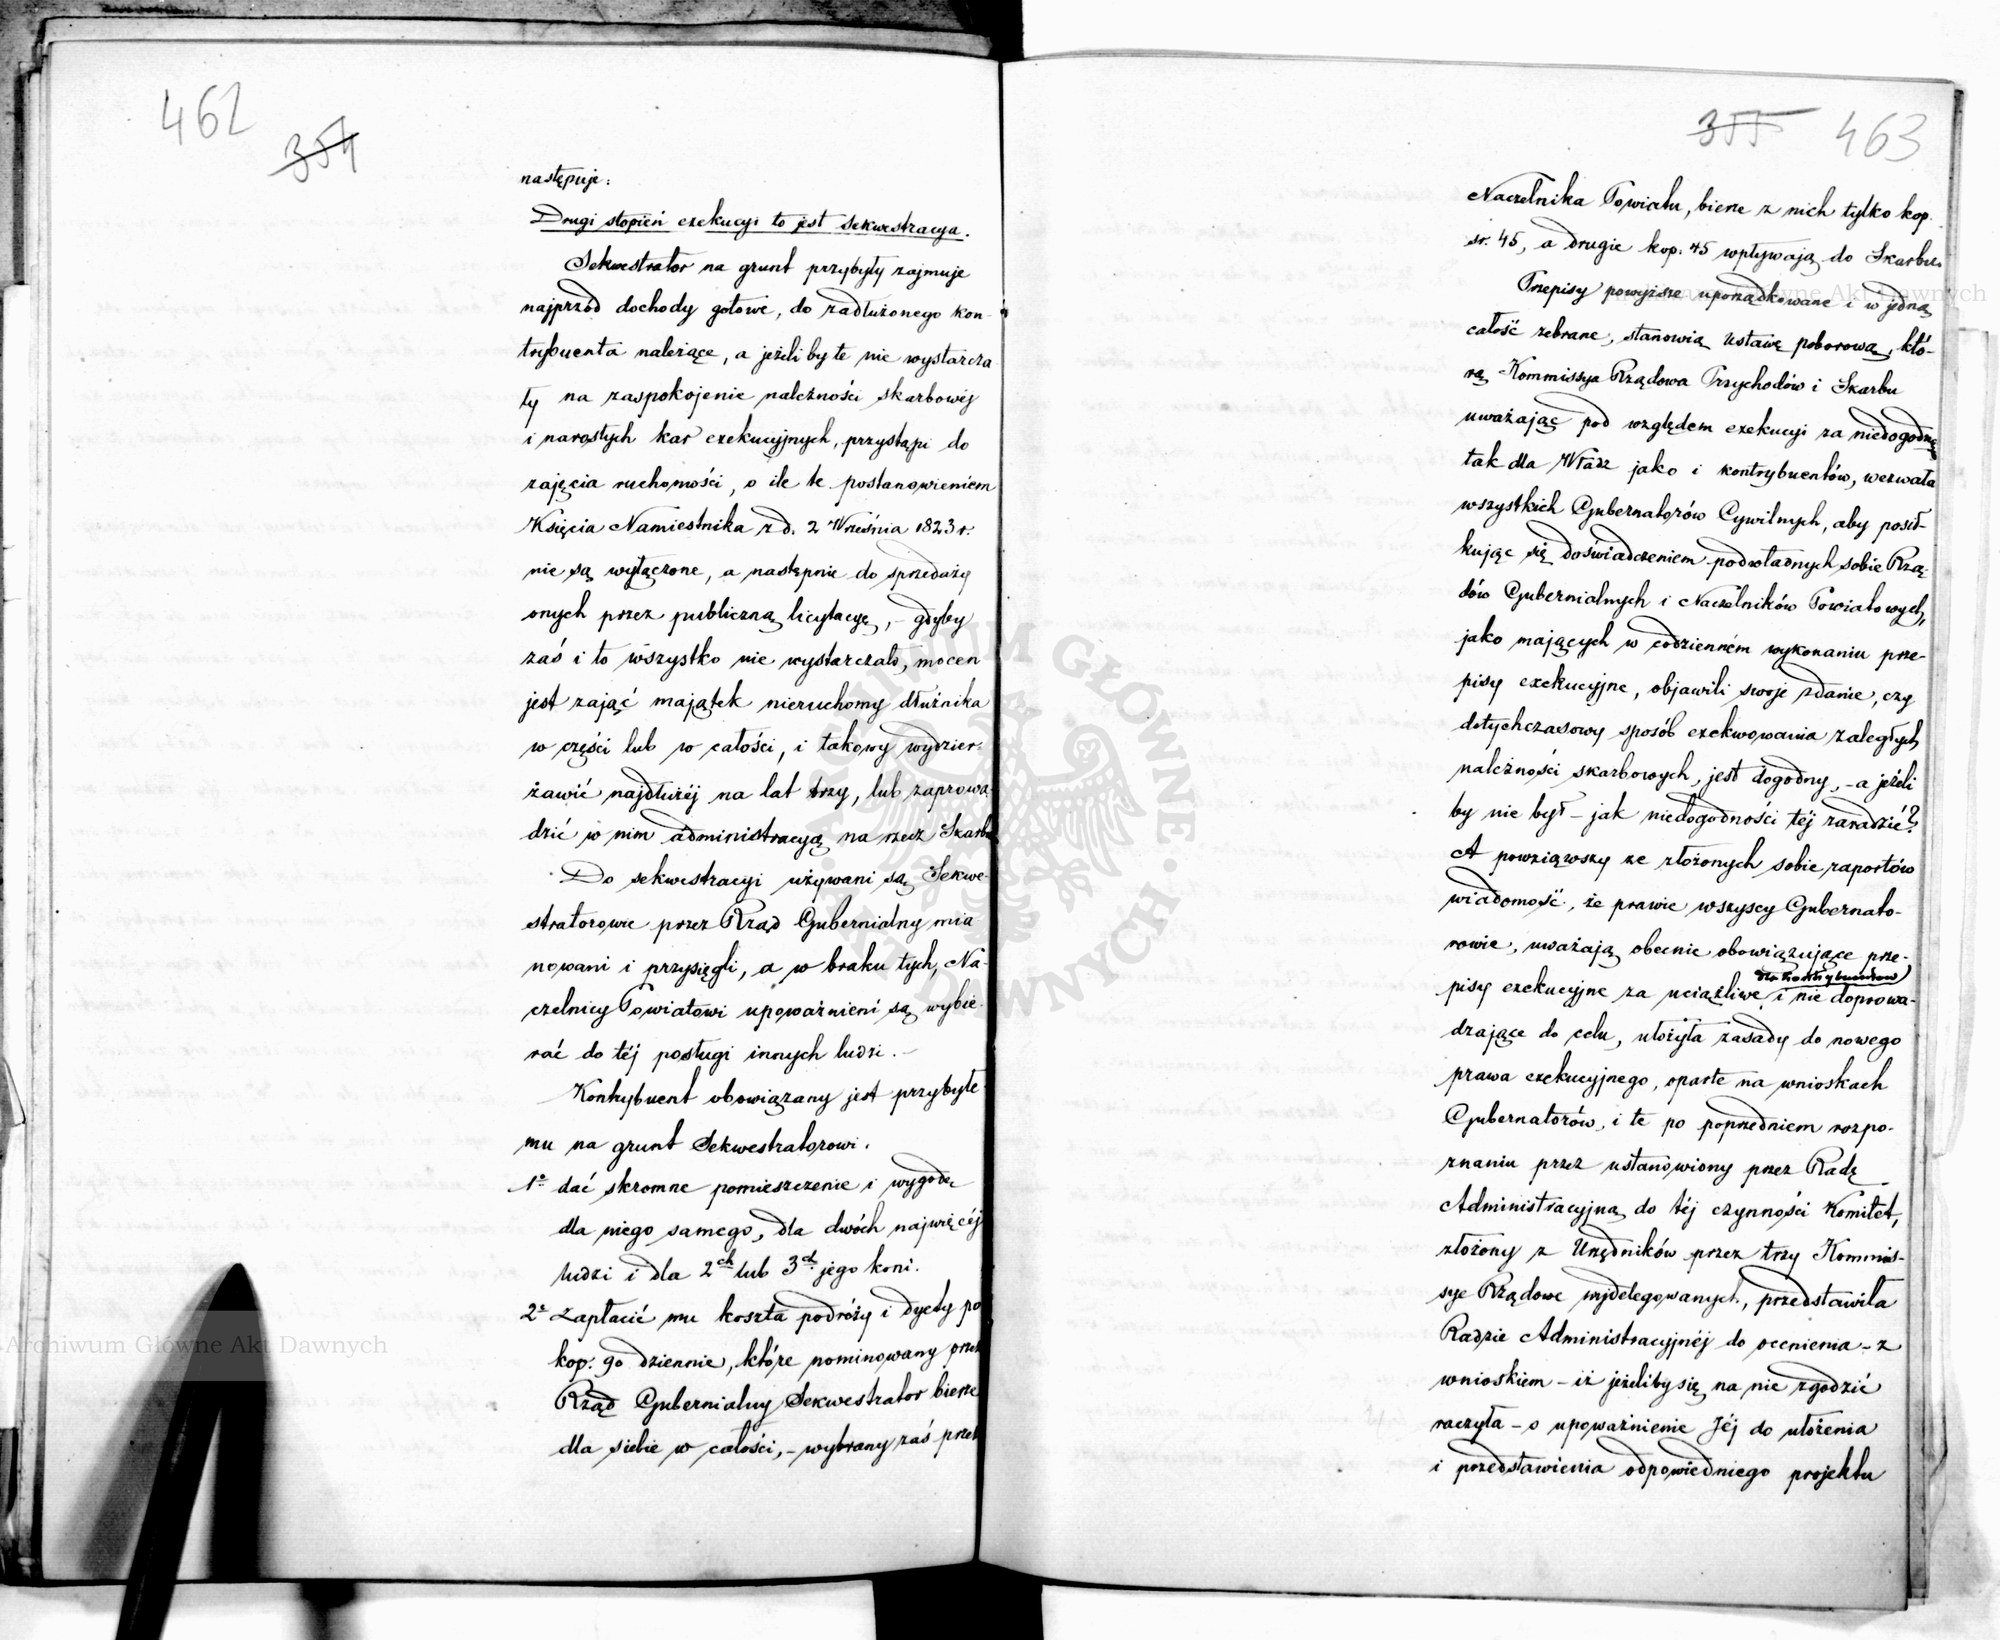 462
354
następuje:
Drugi stopień exekucyi to jest sekwestracya.
Sekwestrator na grunt przybyły zajmuje
najprzód dochody gotowe, do zadłużonego kon-
trybuenta należące, a jeżeliby te nie wystarcza
ły na zaspokojenie należności skarbowéj
i narosłych kar exekucyjnych, przystąpi do
zajęcia ruchomości, o ile te postanowieniem
Księcia Namiestnika z d. 2 Września 1823 r.
nie są wyłączone, a następnie do sprzedaży
onych przez publiczną licytacyę, – gdyby
zaś i to wszystko nie wystarczało, mocen
jest zająć majątek nieruchomy dłużnika
w części lub w całości, i takowy wydzier-
żawić najdłużéj na lat trzy, lub zaprowa
dzić w nim administracyą na rzecz Skarbu
Do sekwestracyi używani są Sekwe-
stratorowie przez Rząd Gubernialny mia
nowani i przysięgli, a w braku tych, Na-
czelnicy Powiatowi upoważnieni są wybie-
rać do téj posługi innych ludzi. –
Kontrybuent obowiązany jest przybyłe-
mu na grunt Sekwestratorowi.
1° dać skromne pomieszczenie i wygodę
dla niego samego, dla dwóch najwięcéj
ludzi i dla 2ch lub 3ch jego koni.
2° Zapłacić mu koszta podróży i dyety po
kop. 90 dziennie, które nominowany przez
Rząd Gubernialny Sekwestrator bierze
dla siebie w całości, – wybrany zaś przez
355 463
Naczelnika Powiatu, bierze z nich tylko kop.
sr. 45, a drugie kop. 45 wpływają do Skarbu.
Przepisy powyższe uporządkowane i w jedną
całość zebrane, stanowią Ustawę poborową, któ-
rą Kommissya Rządowa Przychodów i Skarbu
uważając pod względem exekucyi za niedogodną
tak dla Władz jako i kontrybuentów, wezwała
wszystkich Gubernatorów Cywilnych, aby posił-
kując się doświadczeniem podwładnych sobie Rzą-
dów Gubernialnych i Naczelników Powiatowych,
jako mających w codzienném wykonaniu prze-
pisy exekucyjne, objawili swoje zdanie, czy
dotychczasowy sposób exekwowania zaległych
należności skarbowych, jest dogodny, – a jeżeli
by nie był – jak niedogodności téj zaradzić?
A powziąwszy ze złożonych sobie raportów
wiadomość, że prawie wszyscy Gubernato-
rowie, uważają obecnie obowiązujące prze-
dla kontrybuentów
pisy exekucyjne za uciążliwe i nie doprowa-
dzające do celu, ułożyła zasady do nowego
prawa exekucyjnego, oparte na wnioskach
Gubernatorów, i te po poprzedniem rozpo-
znaniu przez ustanowiony przez Radę
Administracyjną do téj czynności Komitet,
złożony z Urzędników przez trzy Kommis-
sye Rządowe wydelegowanych, przedstawiła
Radzie Administracyjnéj do ocenienia – z
wnioskiem – iż jeżeliby się na nie zgodzić
raczyła – o upoważnienie Jéj do ułożenia
i przedstawienia odpowiedniego projektu
ARCHIWUM GŁÓWNE AKT DAWNYCH
Archiwum Główne Akt Dawnych
Archiwum Główne Akt Dawnych